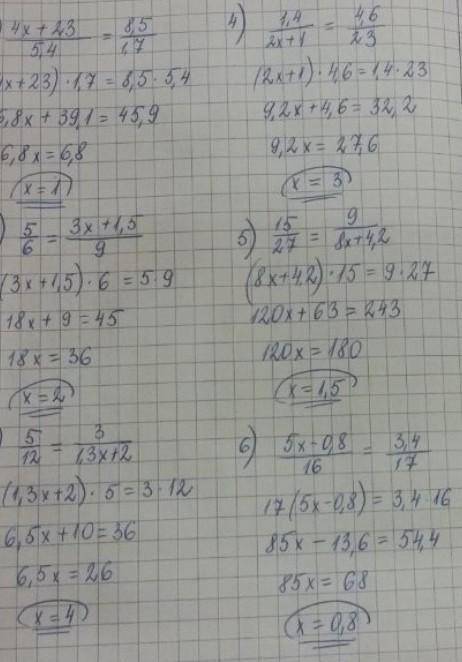 ) (4x+23)/5,4 = 8,5/1,7
4x+23)·1,7 = 8,5·5,4
6,8x+39,1=45,9
6,8x=6,8
x=1
) 5/6 = (3x+1,5)/9
(3x+1,5)·6=5·9
18x+9=45
18x=36
x=2
) 5/12 = 3/(1,3x+2)
(1,3x+2)·5=3·12
6,5x+10=36
6,5x=26
x=4
4) 1,4/(2x+1) = 4,6/23
(2x+1)·4,6=1,4·23
9,2x+4,6=32,2
9,2x=27,6
x=3
5) 15/27 = 9/(8x+4,2)
(8x+4,2)·15=9·27
120x+63=243
120x=180
x=1,5
6) (5x-0,8)/16 = 3,4/17
17(5x-0,8)=3,4·16
85x-13,6=54,4
85x=68
x=0,8